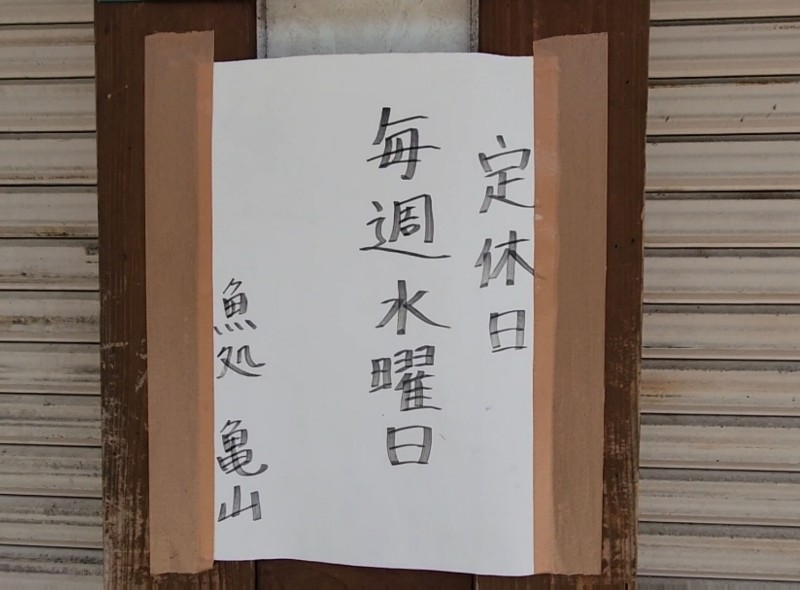 定休日
毎週水曜日
魚処 亀山